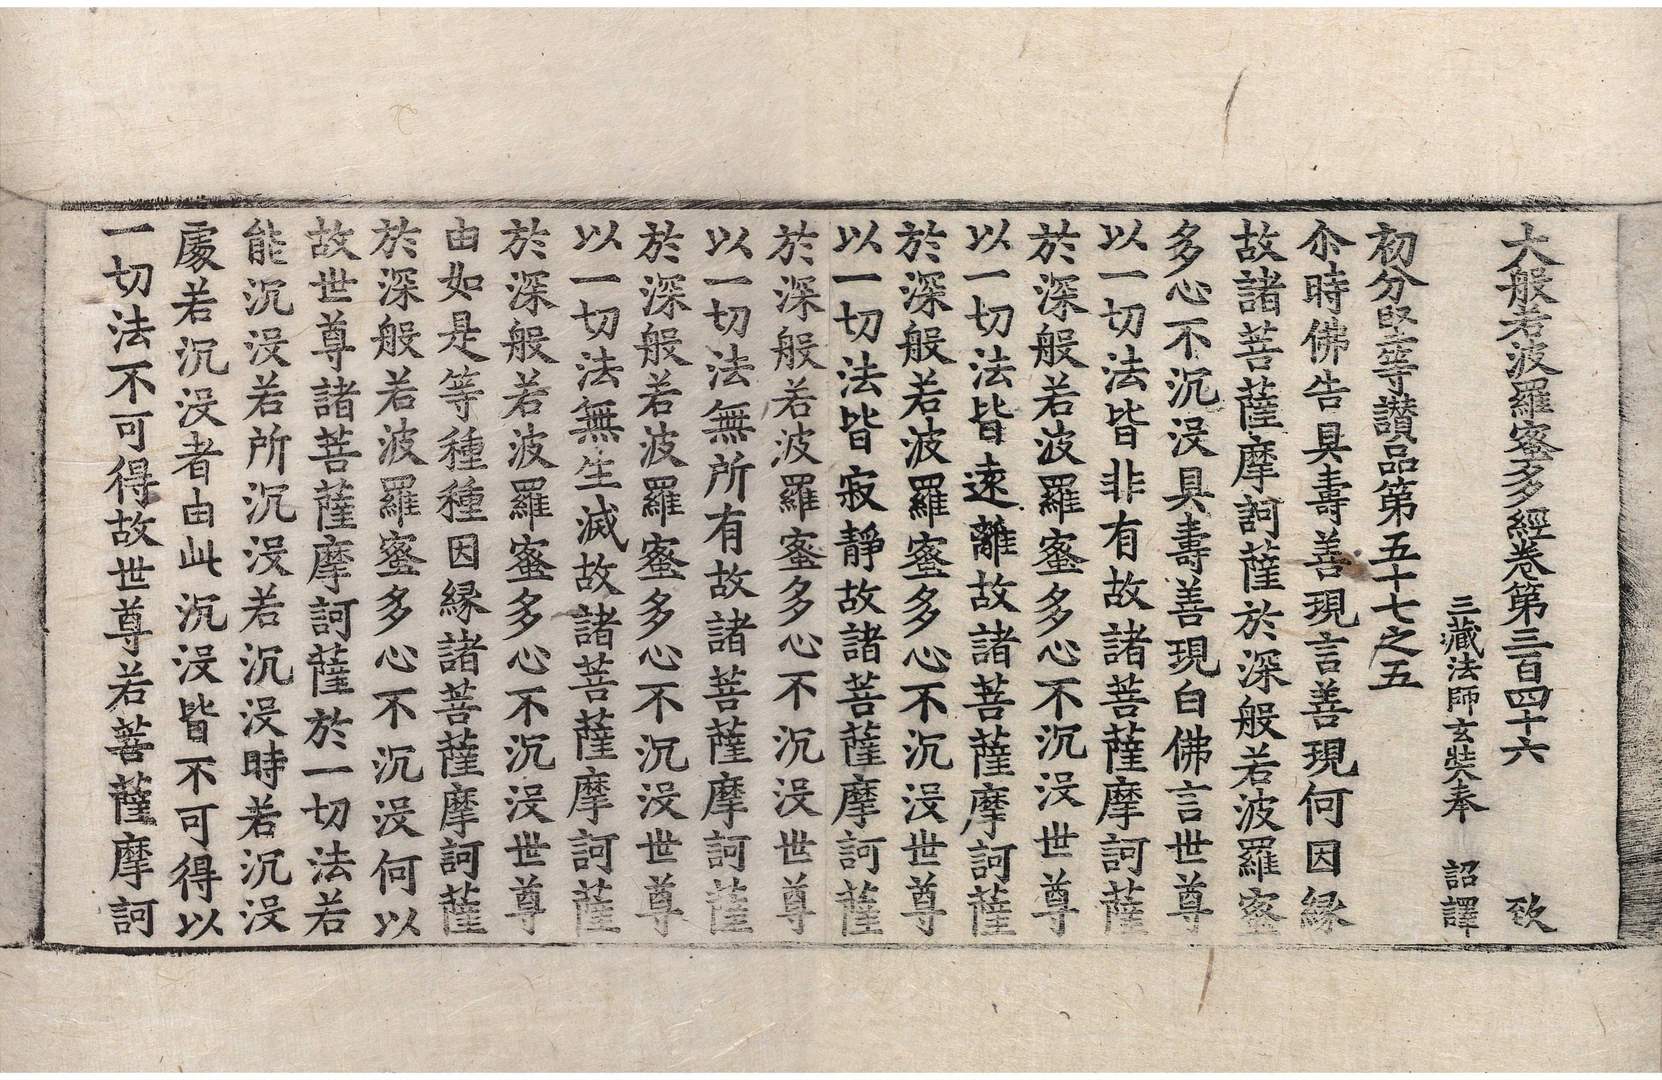 大般若波羅蜜多經卷第三百四十六 致
三藏法師玄奘奉 詔譯
初分堅等讚品第五十七之五
尒時佛告具壽善現言善現何因縁
故諸菩薩摩訶薩於深般若波羅蜜
多心不沉沒具壽善現白佛言世尊
以一切法皆非有故諸菩薩摩訶薩
於深般若波羅蜜多心不沉沒世尊
以一切法皆遠離故諸菩薩摩訶薩
於深般若波羅蜜多心不沉沒世尊
以一切法皆寂靜故諸菩薩摩訶薩
於深般若波羅蜜多心不沉沒世尊
以一切法無所有故諸菩薩摩訶薩
於深般若波羅蜜多心不沉沒世尊
以一切法無生滅故諸菩薩摩訶薩
於深般若波羅蜜多心不沉沒世尊
由如是等種種因縁諸菩薩摩訶薩
於深般若波羅蜜多心不沉沒何以
故世尊諸菩薩摩訶薩於一切法若
能沉沒若所沉沒若沉沒時若沉沒
處若沉沒者由此沉沒皆不可得以
一切法不可得故世尊若菩薩摩訶